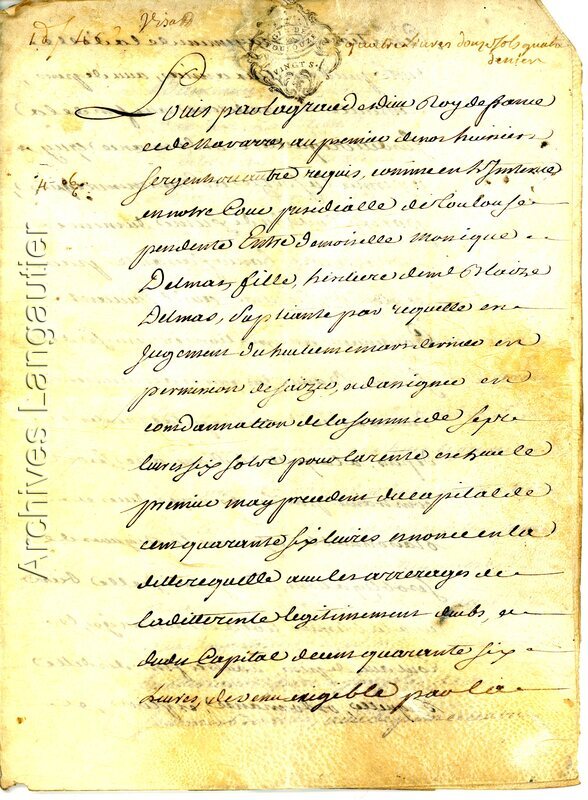 quatre livres douze sols quatre
denier
VINGT S.
Louis par la grace de dieu Roy de france
et de Navarre, au premier de nos huissiers
sergent ou autre requis, comme en L'Instance
en notre Cour presidialle de toulouse
pendente Entre demoiselle monique
Delmas, fille, heritiere de mr Blaize
Delmas, supliante par requette en
Jugement du huitieme mars dernier en
permission de saizir, a dassignee en
condannation de la somme de sept
livres six sols pour la rente echue le
premier may precedent du capital de
cent quarante six livres enoncé en la
ditte requette avec les arrerages de
la ditte rente legitimement deubs, et
dudit Capital de cent quarante six
Livres, devenu exigible par la
Archives Langautier